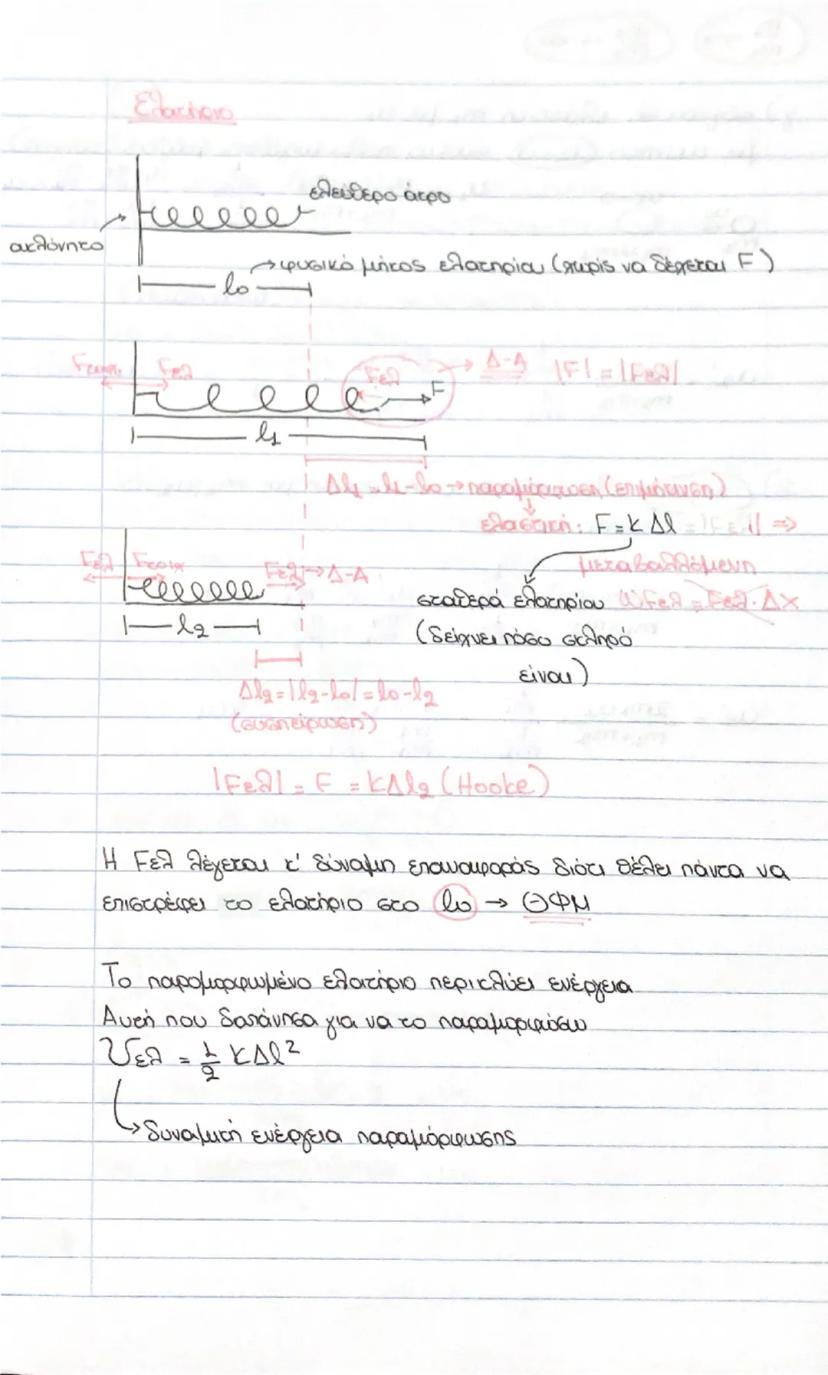 Ελατήριο
ελεύθερο άκρο
ακλόνητο
→ φυσικό μήκος ελατηρίου (χωρίς να δέχεται F)
l₀
Fελ Fελ → Δ-Α |F| = |Fελ|
F
l₁
Δl₁ = l₁-l₀ → παραμόρφωση (επιμήκυνση)
ελαστική: F = k Δl ⇒
Fελ Fτοιχ Fελ → Δ-Α μεταβαλλόμενη
σταθερά ελατηρίου WFελ = Fελ · Δx
l₂ (δείχνει πόσο σκληρό
είναι)
Δl₂ = |l₂-l₀| = l₀-l₂
(συσπείρωση)
|Fελ| = F = kΔl₂ (Hooke)
Η Fελ λέγεται κ' δύναμη επαναφοράς διότι θέλει πάντα να
επιστρέφει το ελατήριο στο l₀ → ΘΦΜ
Το παραμορφωμένο ελατήριο περικλύει ενέργεια
Αυτή που δαπάνησα για να το παραμορφώσω
Uελ = 1/2 kΔl²
→ δυναμική ενέργεια παραμόρφωσης